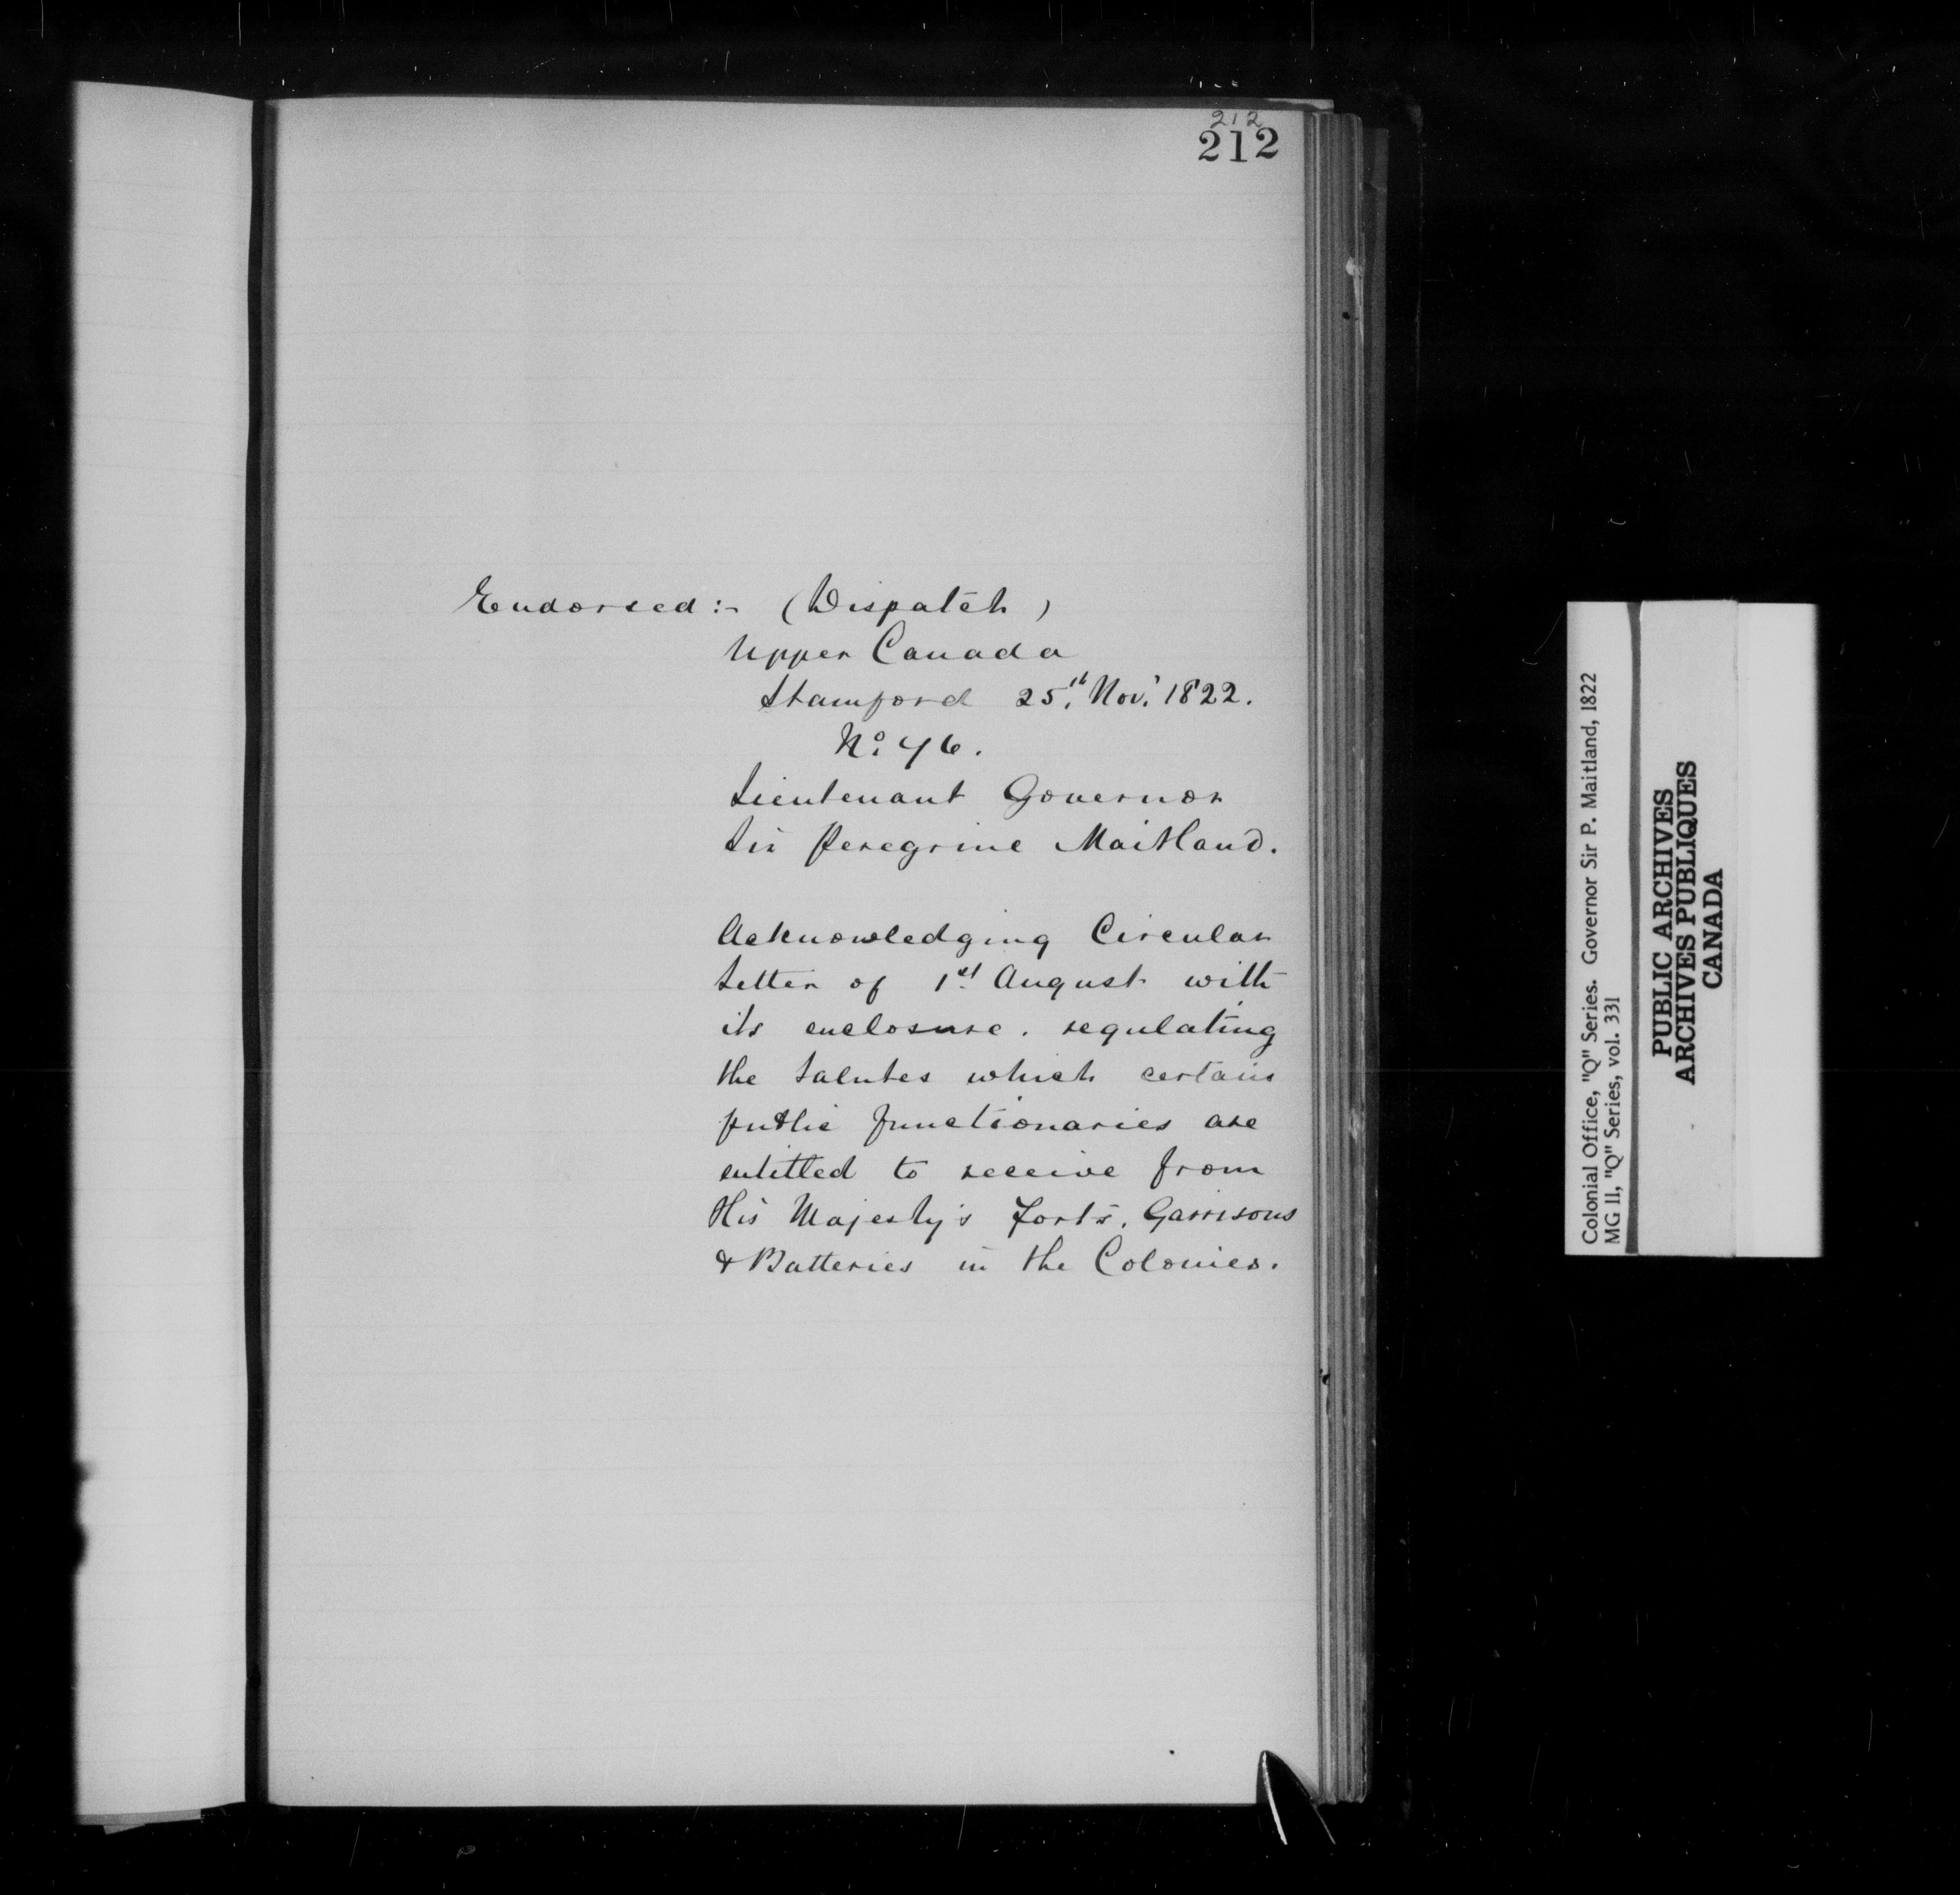 212
212
Endorsed :- (Dispatch)
Upper Canada
Stamford 25.th Nov.' 1822.
No. 46.
Lieutenant Governor
Sir Peregrine Maitland.
Acknowledging Circular
Letter of 1st August with
its enclosure. regulating
the Salutes which certain
public functionaries are
entitled to receive from
His Majesty's Forts, Garrisons
& Batteries in the Colonies.
Colonial Office, "Q" Series. Governor Sir P. Maitland, 1822
MG 11, "Q" Series, vol. 331
PUBLIC ARCHIVES
ARCHIVES PUBLIQUES
CANADA